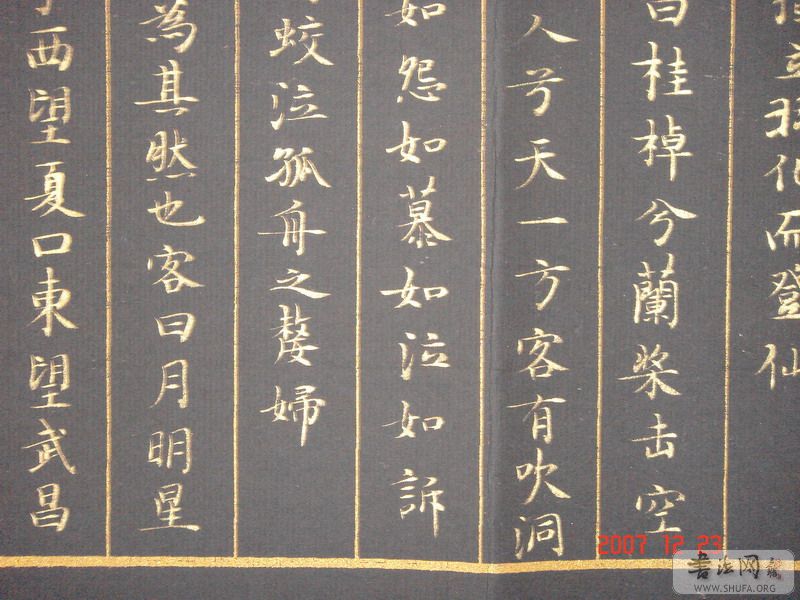 立羽化而登仙
曰桂棹兮蘭槳击空
人兮天一方客有吹洞
如怨如慕如泣如訴
蛟泣孤舟之嫠婦
為其然也客曰月明星
西望夏口東望武昌
2007 12 23
書法网
WWW.SHUFA.ORG